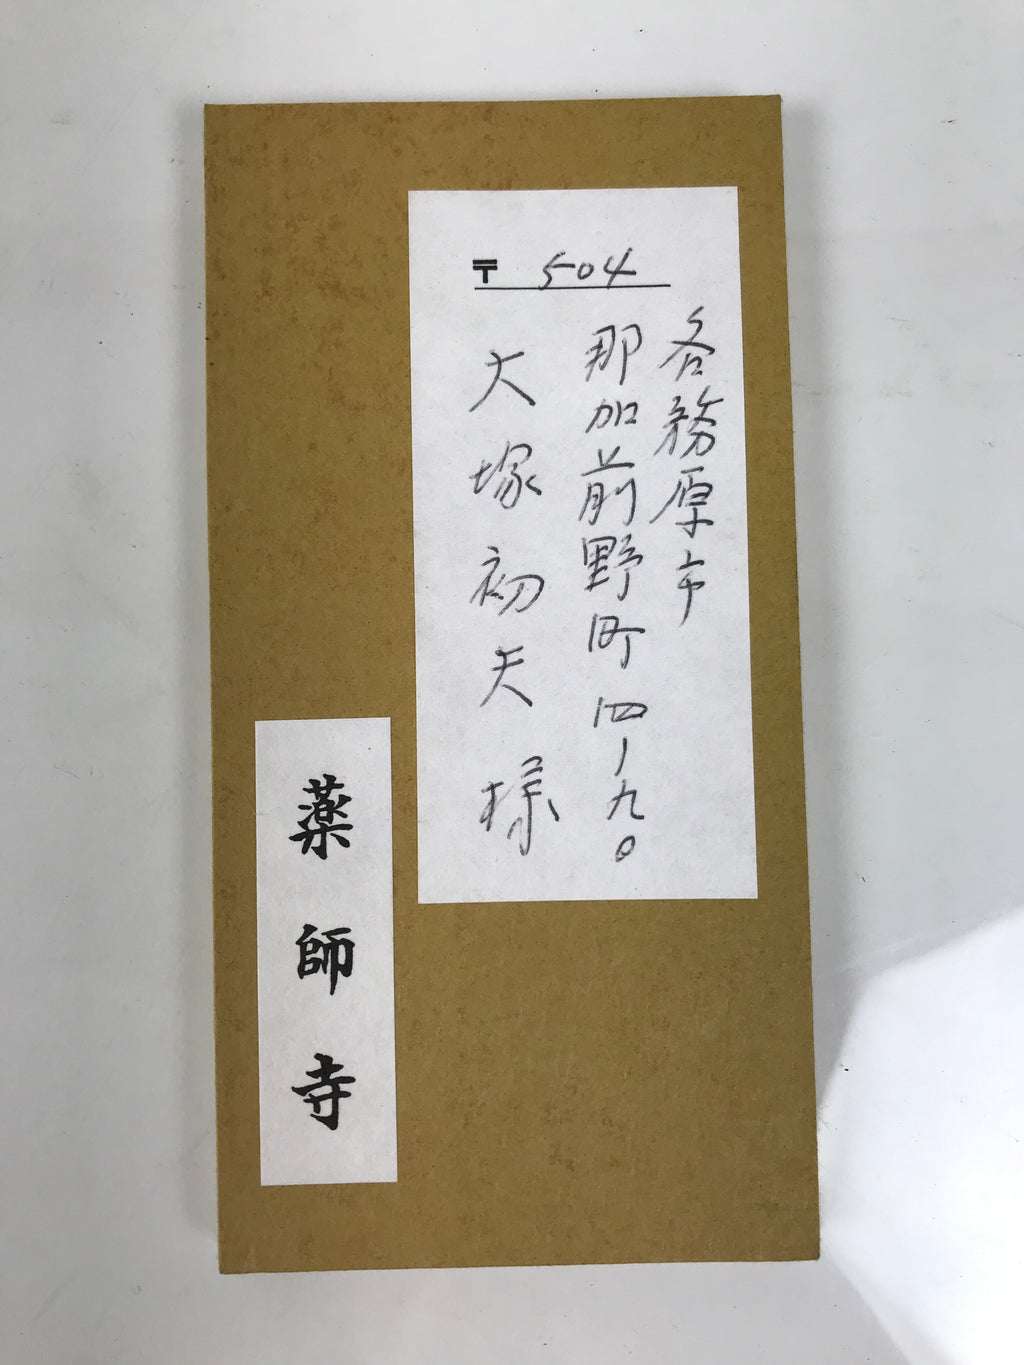 〒 504
各務原市
那加前野町四ー九〇
大塚初夫様
薬師寺